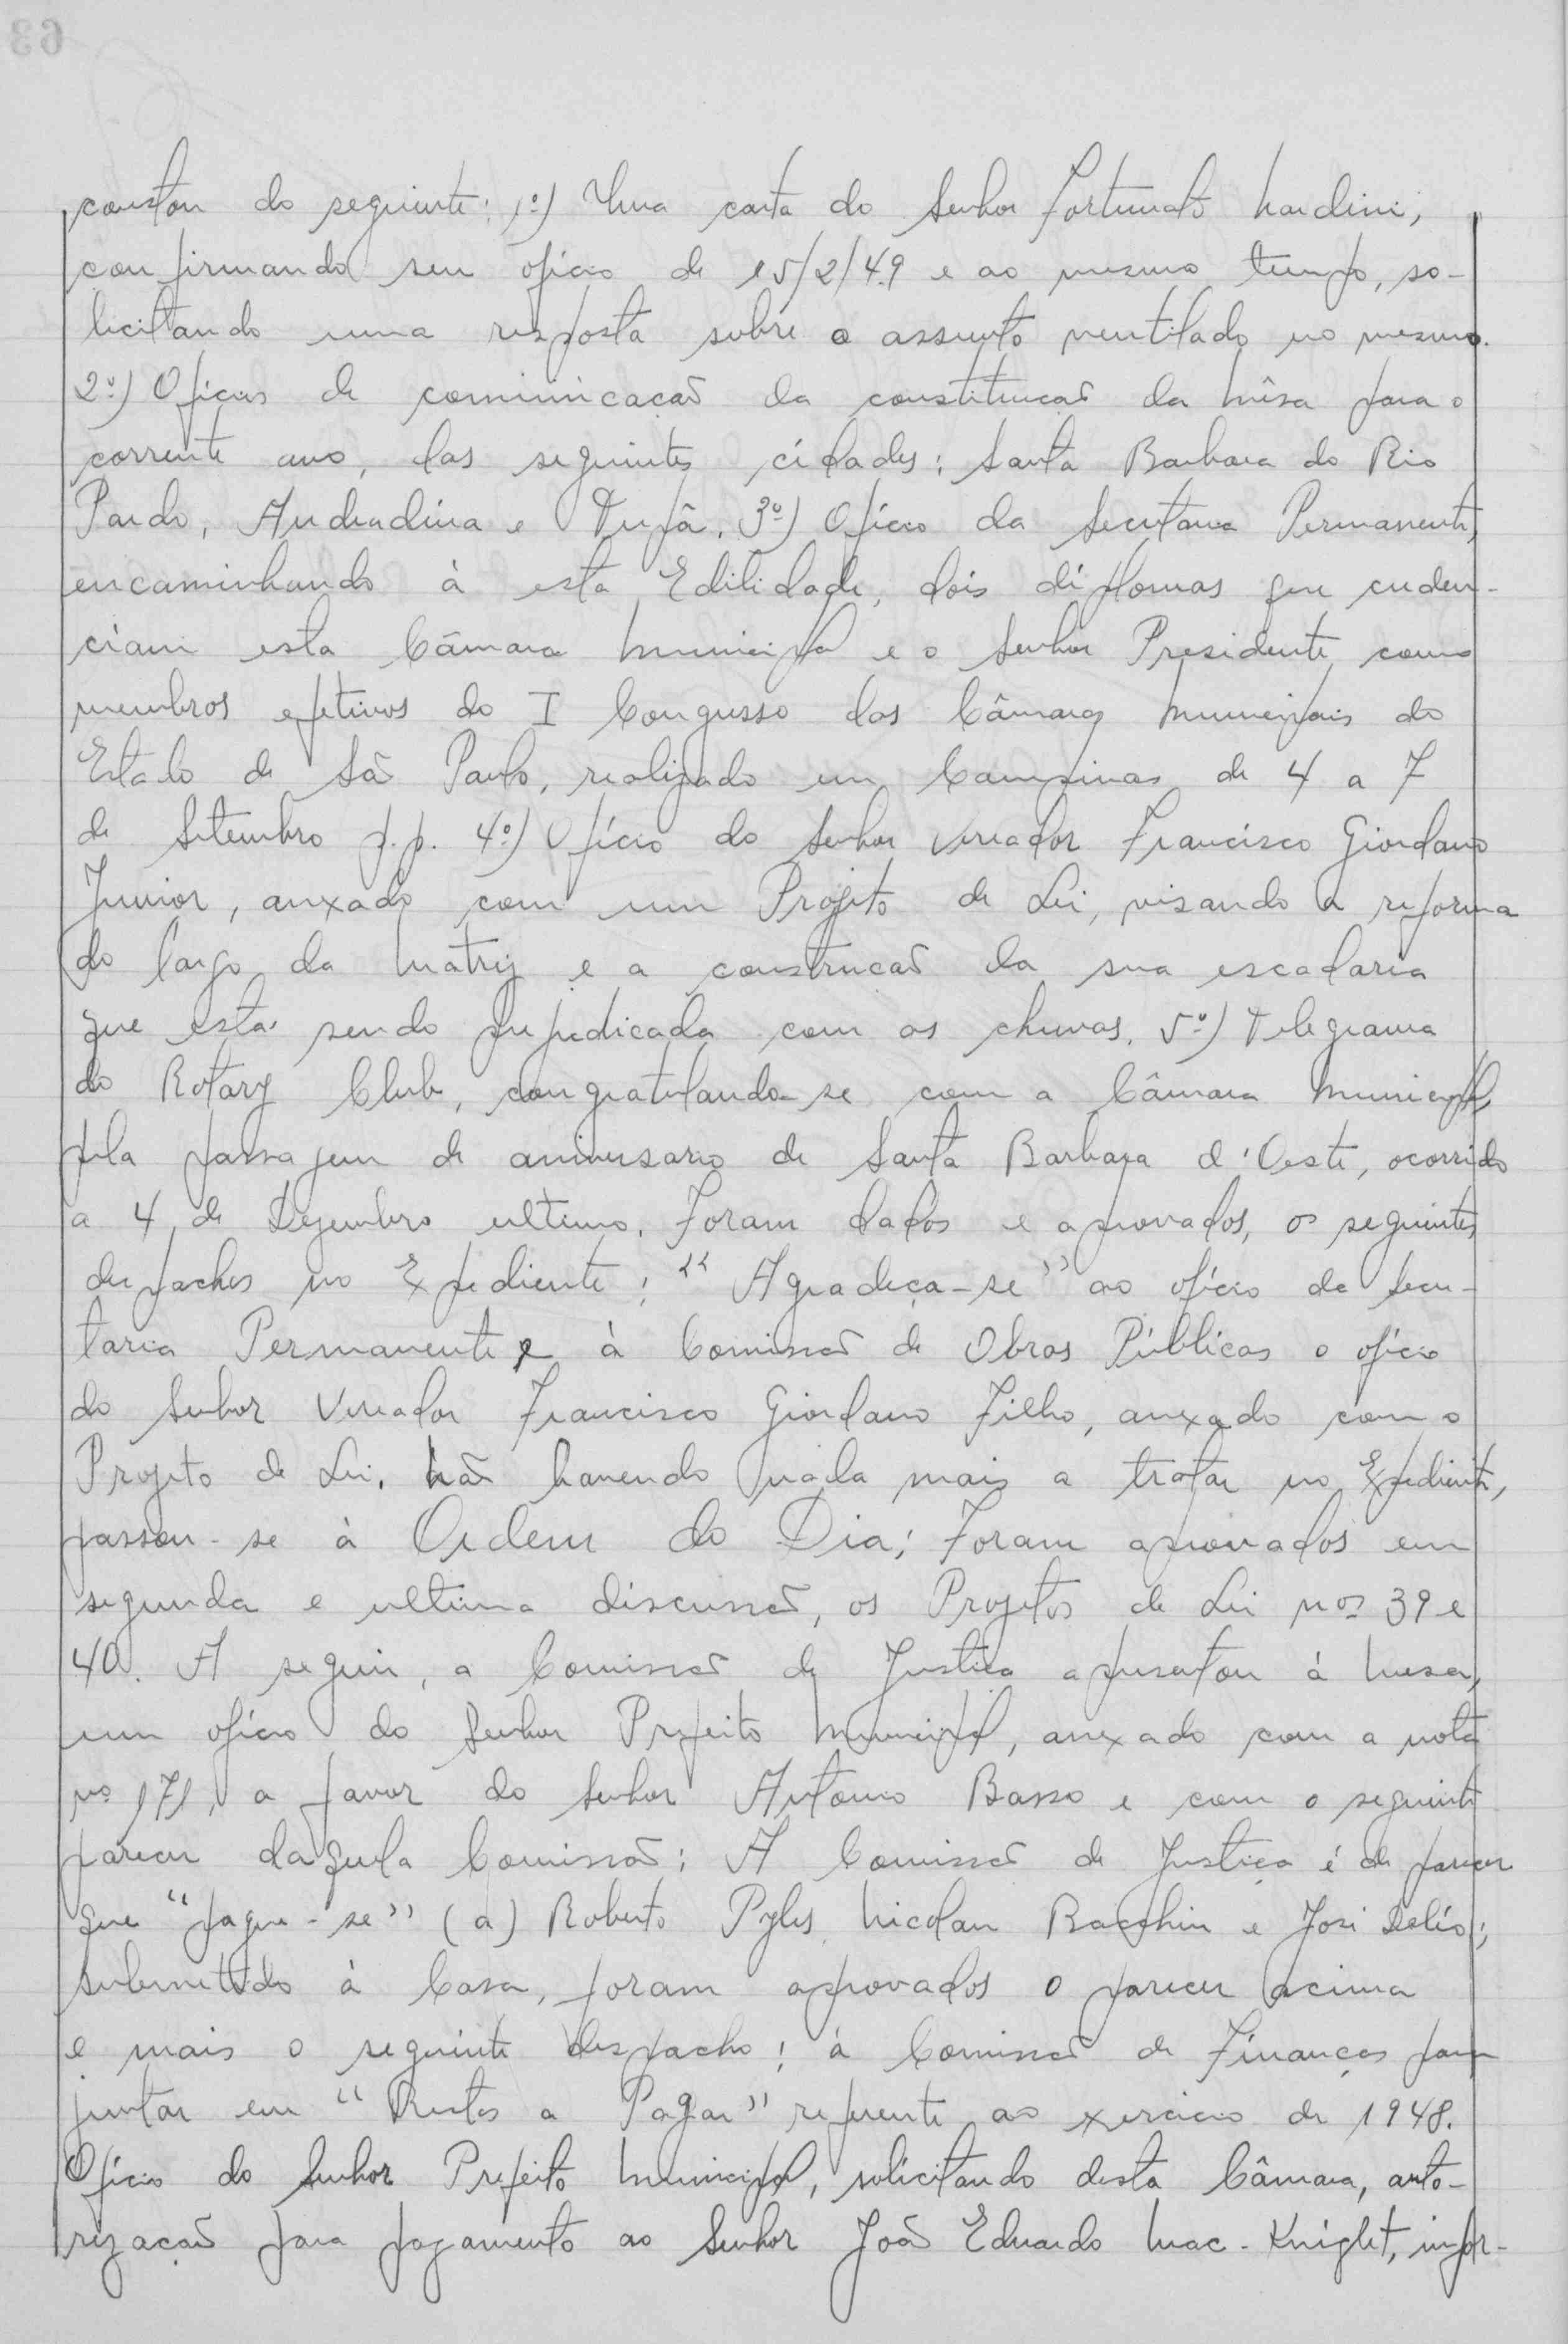 constou do seguinte: 1º) Uma carta do Senhor Fortunato Nardini,
confirmando seu ofício de 15/2/49 e ao mesmo tempo, so-
licitando uma resposta sobre o assunto ventilado no mesmo.
2º) Ofícios de comunicação da constituição da Mêsa para o
corrente ano, das seguintes cidades: Santa Barbara do Rio
Pardo, Andradina e Tupã. 3º) Ofício da Secretaria Permanente,
encaminhando à esta Edilidade, dois diplomas que creden-
ciam esta Câmara Municipal e o Senhor Presidente como
membros efetivos do I Congresso das Câmaras Municipais do
Estado de São Paulo, realizado em Campinas de 4 a 7
de Setembro p.p. 4º) Ofício do Senhor Vereador Francisco Giordano
Junior, anexado com um Projeto de Lei, visando a reforma
do largo da Matriz e a construcão da sua escadaria
que está sendo prejudicada com as chuvas. 5º) Telegrama
do Rotary Club, congratulando-se com a Câmara Municipal,
pela passagem de aniversario de Santa Barbara d'Oeste, ocorrido
a 4 de Dezembro ultimo. Foram dados e aprovados, os seguintes
despachos no Expediente: "Agradeça-se" ao ofício da Secre-
taria Permanente e à Comissão de Obras Públicas o ofício
do Senhor Vereador Francisco Giordano Filho, anexado com o
Projeto de Lei. Não havendo nada mais a tratar no Expediente,
passou-se à Ordem do Dia: Foram aprovados em
segunda e ultima discussão, os Projetos de Lei nos 39 e
40. A seguir, a Comissão de Justiça apresentou à Mesa,
um ofício do Senhor Prefeito Municipal, anexado com a nota
nº 171, a favor do Senhor Antonio Basso e com o seguinte
parecer daquela Comissão: A Comissão de Justiça é de parecer
que "pague-se" (a) Roberto Pyles, Nicolau Bacchin e José Delío;
submettido à Casa, foram aprovados o parecer acima
e mais o seguinte despacho: à Comissão de Finanças para
juntar em "Restos a Pagar" referente ao exercicio de 1948.
Ofício do Senhor Prefeito Municipal, solicitando desta Câmara, auto-
rização para pagamento ao Senhor João Eduardo Mac-Knight, impor-